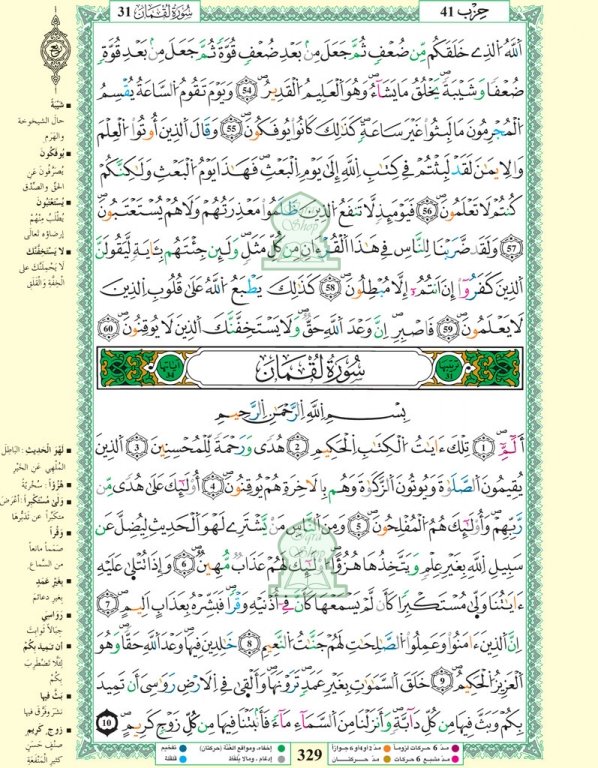 حِزْب 41
سُورَةُ لُقْمَان 31
اَللَّهُ الذِے خَلَقَكُم مِّن ضُعْفٖ ثُمَّ جَعَلَ مِنۢ بَعْدِ ضُعْفٖ قُوَّةٗ ثُمَّ جَعَلَ مِنۢ بَعْدِ قُوَّةٖ
ضُعْفاٗ وَشَيْبَةٗ يَخْلُقُ مَا يَشَآءُ وَهُوَ اَلْعَلِيمُ الْقَدِيرُ 54 وَيَوْمَ تَقُومُ السَّاعَةُ يُقْسِمُ
الْمُجْرِمُونَ مَا لَبِثُوا غَيْرَ سَاعَةٖ كَذَٰلِكَ كَانُوا يُوفَكُونَ 55 وَقَالَ الذِينَ أُوتُوا الْعِلْمَ
وَالِايمَٰنَ لَقَدْ لَبِثْتُمْ فِے كِتَٰبِ اِللَّهِ إِلَىٰ يَوْمِ الْبَعْثِ فَهَٰذَا يَوْمُ الْبَعْثِ وَلَٰكِنَّكُمْ
كُنتُمْ لَا تَعْلَمُونَ 56 فَيَوْمَئِذٖ لَّا تَنفَعُ الذِينَ ظَلَمُوا مَعْذِرَتُهُمْ وَلَا هُمْ يُسْتَعْتَبُونَ
57 وَلَقَد ضَّرَبْنَا لِلنَّاسِ فِے هَٰذَا اَلْقُرْءَانِ مِن كُلِّ مَثَلٖ وَلَئِن جِئْتَهُم بِـَٔايَةٖ لَّيَقُولَنَّ
الذِينَ كَفَرُوا إِنَ اَنتُمُۥٓ إِلَّا مُبْطِلُونَ 58 كَذَٰلِكَ يَطْبَعُ اُللَّهُ عَلَىٰ قُلُوبِ الذِينَ
لَا يَعْلَمُونَ 59 فَاصْبِرِ اِنَّ وَعْدَ اَللَّهِ حَقّٞ وَلَا يَسْتَخِفَّنَّكَ اَلذِينَ لَا يُوقِنُونَ 60
ترتيبها 31
سُورَةُ لُقْمَانَ
آياتها 34
بِسْمِ اِللَّهِ اِلرَّحْمَٰنِ اِلرَّحِيمِ
أَلَٓمِّٓ 1 تِلْكَ ءَايَٰتُ الْكِتَٰبِ الْحَكِيمِ 2 هُدىٗ وَرَحْمَةٗ لِّلْمُحْسِنِينَ 3 اَلذِينَ
يُقِيمُونَ الصَّلَوٰةَ وَيُوتُونَ الزَّكَوٰةَ وَهُم بِالَاخِرَةِ هُمْ يُوقِنُونَ 4 أُوْلَٰٓئِكَ عَلَىٰ هُدىٗ مِّن
رَّبِّهِمْ وَأُوْلَٰٓئِكَ هُمُ الْمُفْلِحُونَ 5 وَمِنَ النَّاسِ مَنْ يَّشْتَرِے لَهْوَ الْحَدِيثِ لِيُضِلَّ عَن
سَبِيلِ اِللَّهِ بِغَيْرِ عِلْمٖ وَيَتَّخِذُهَا هُزُؤاً اُوْلَٰٓئِكَ لَهُمْ عَذَابٞ مُّهِينٞ 6 وَإِذَا تُتْلَىٰ عَلَيْهِ
ءَايَٰتُنَا وَلَّىٰ مُسْتَكْبِراٗ كَأَن لَّمْ يَسْمَعْهَا كَأَنَّ فِےٓ أُذْنَيْهِ وَقْراٗ فَبَشِّرْهُ بِعَذَابٍ اَلِيمٍ 7
إِنَّ الذِينَ ءَامَنُوا وَعَمِلُوا الصَّٰلِحَٰتِ لَهُمْ جَنَّٰتُ النَّعِيمِ 8 خَٰلِدِينَ فِيهَا وَعْدَ اَللَّهِ حَقّاٗ وَهُوَ
اَلْعَزِيزُ الْحَكِيمُ 9 خَلَقَ السَّمَٰوَٰتِ بِغَيْرِ عَمَدٖ تَرَوْنَهَا وَأَلْقَىٰ فِے الَارْضِ رَوَٰسِيَ أَن تَمِيدَ
بِكُمْ وَبَثَّ فِيهَا مِن كُلِّ دَآبَّةٖ وَأَنزَلْنَا مِنَ السَّمَآءِ مَآءٗ فَأَنۢبَتْنَا فِيهَا مِن كُلِّ زَوْجٖ كَرِيمٍ 10
■ شَيْبَةً
حالَ الشيخوخة
والهَرَم
■ يُوفَكُونَ
يُصْرَفُونَ عَنِ
الحقّ والصِّدْق
■ يُسْتَعْتَبُونَ
يُطْلَبُ مِنْهُمْ
إرضاؤه تعالى
■ لا يَسْتَخِفَّنَّكَ
لا يَحْمِلَنَّكَ على
الخِفَّةِ والقَلَقِ
■ لَهْوَ الْحَدِيثِ : البَاطِلَ
المُلْهِي عَن الخَيْر
■ هُزُؤاً : سُخْرِيَّةً
■ وَلَّىٰ مُسْتَكْبِراً : أعْرَضَ
متكبِّراً عن تَدَبُّرِها
■ وَقْراً
صَمَماً مانعاً
من السَّماع
■ بغَيْرِ عَمَدٍ
بغير دعائمَ
■ رَوَاسِيَ
جبالاً ثوابتَ
■ أن تَمِيدَ بكُمْ
لِئلا تَضْطَرِبَ
بكُمْ
■ بَثَّ فِيها
نَشَرَ وفرَّقَ فيها
■ زَوْجٍ كريمٍ
صنفٍ حَسَنٍ
كثير المَنْفَعَة
مدّ 6 حركات لزوماً
مدّ 2 أو 4 أو 6 جوازاً
مدّ مشبع 6 حركات
مدّ حركتان
329
إخفاء، ومواقع الغُنَّة (حركتان)
إدغام، وما لا يُلفَظ
تفخيم
قلقلة